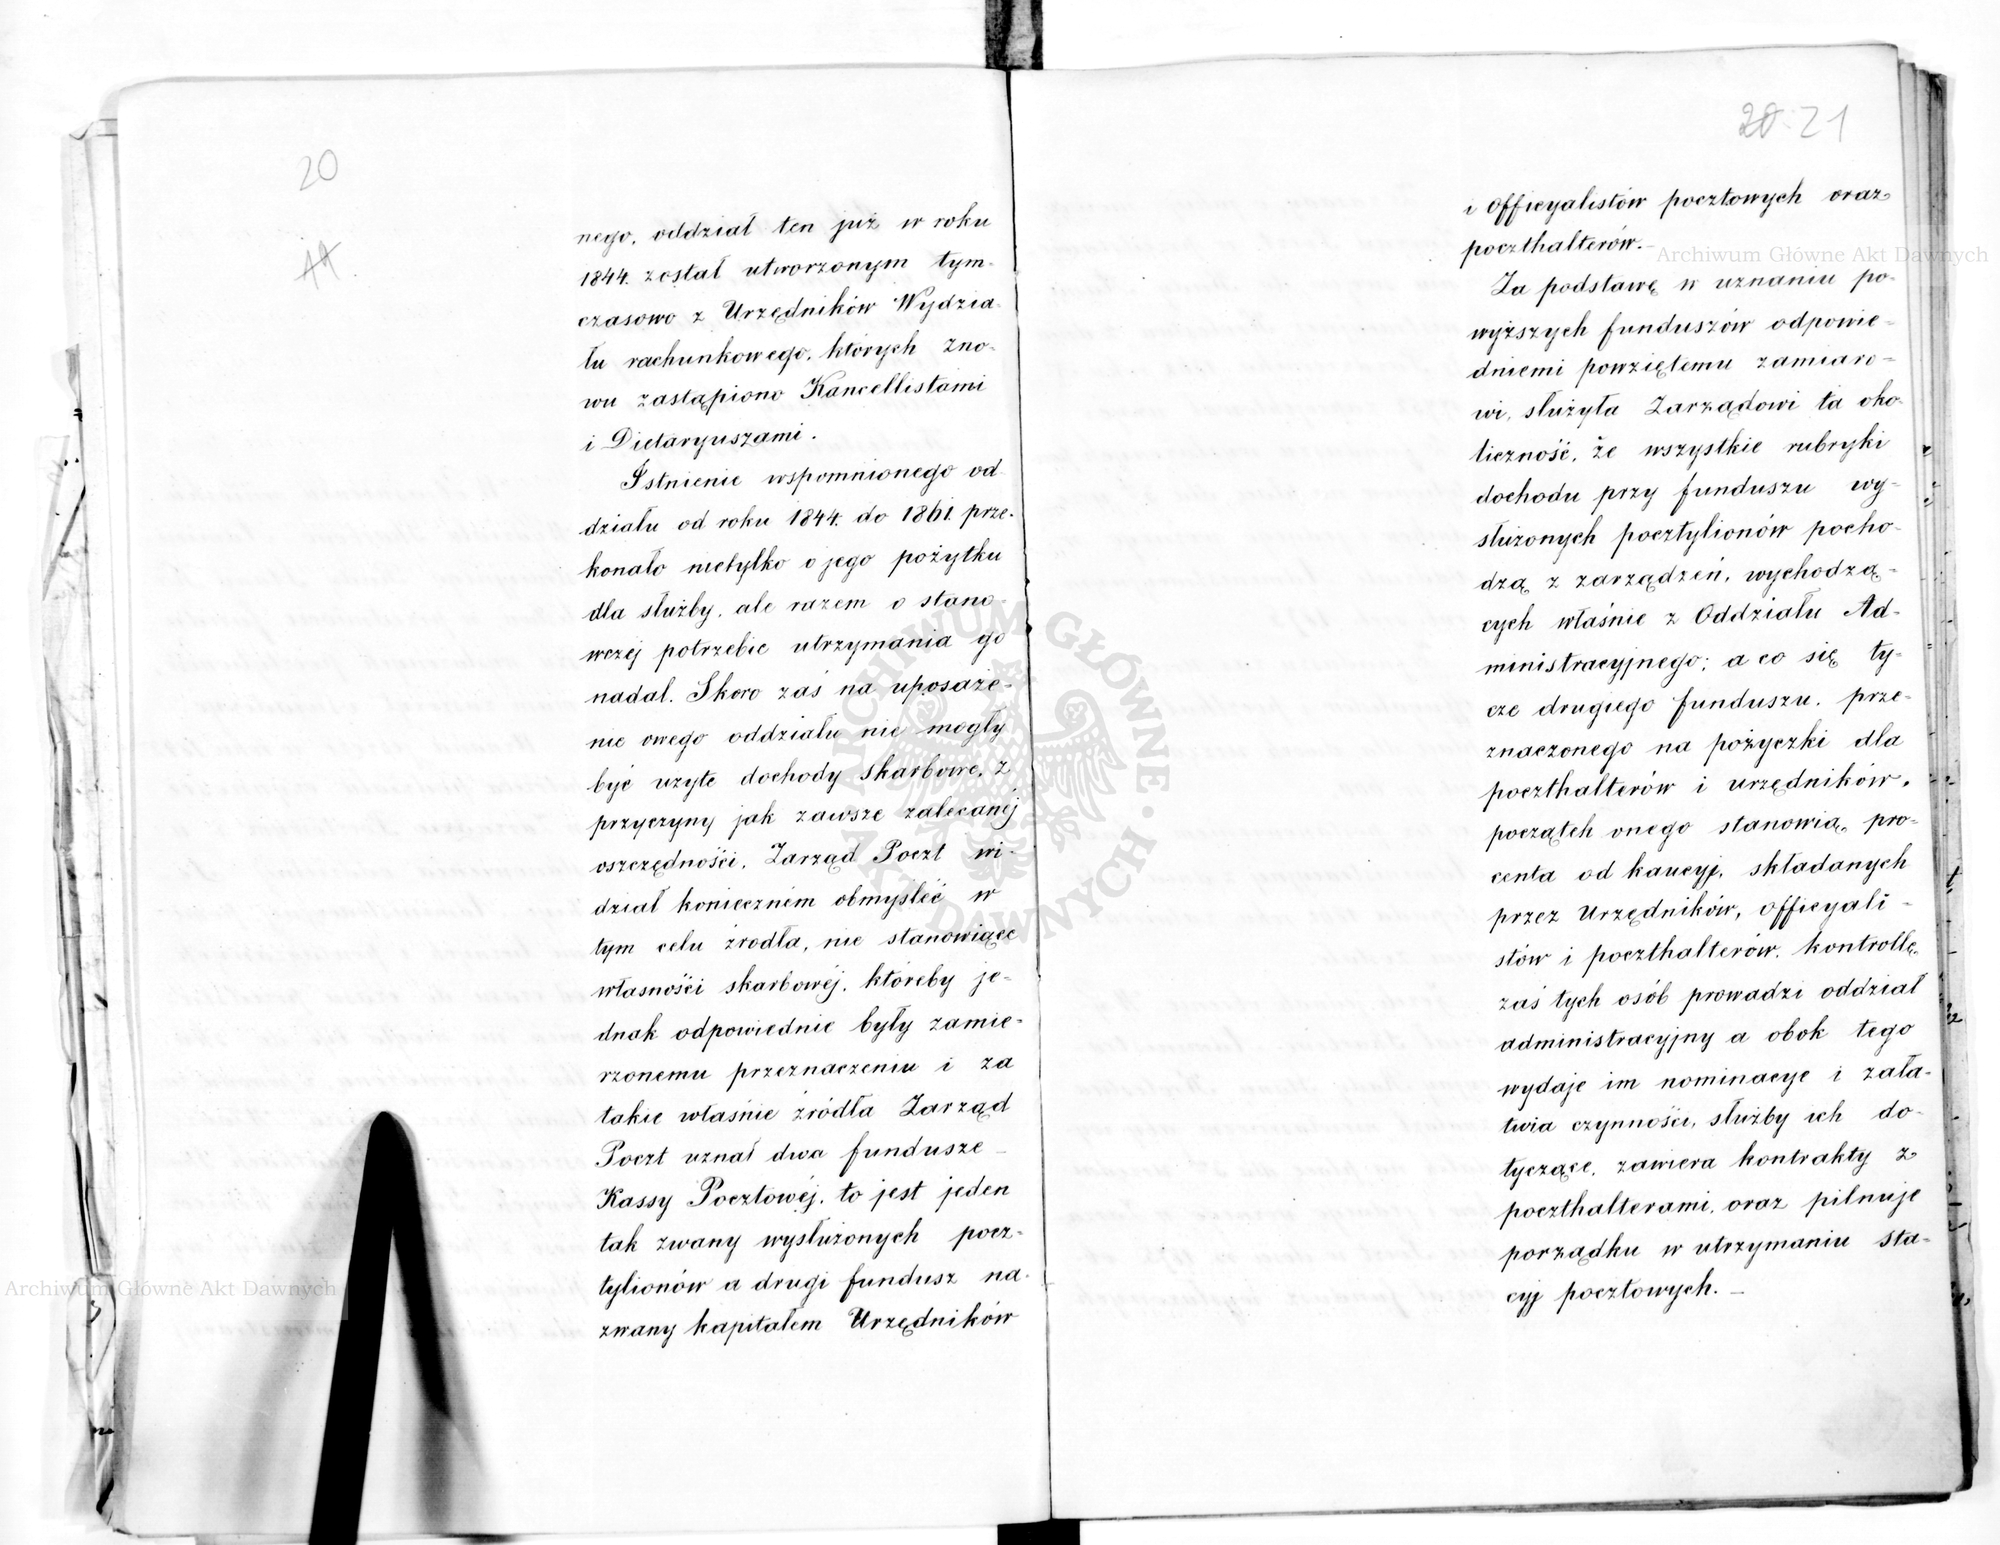 20
nego, oddział ten już w roku
1844. został utworzonym tym-
czasowo z Urzędników Wydzia-
łu rachunkowego, których zno-
wu zastąpiono Kancellistami
i Dietaryuszami.
Istnienie wspomnionego od-
działu od roku 1844. do 1861. prze-
konało nietylko o jego pożytku
dla służby, ale razem o stano-
wczéj potrzebie utrzymania go
nadal. Skoro zaś na uposaże-
nie owego oddziału nie mogły
być użyte dochody skarbowe, z
przyczyny jak zawsze zalecanéj
oszczędności, Zarząd Poczt wi-
dział konieczném obmyśleć w
tym celu źrodła, nie stanowiące
własności skarbowéj, któreby je-
dnak odpowiednie były zamie-
rzonemu przeznaczeniu i za
takie właśnie źródła Zarząd
Poczt uznał dwa fundusze –
Kassy Pocztowéj, to jest jeden
tak zwany wysłużonych pocz-
tylionów a drugi fundusz na-
zwany kapitałem Urzędników
20. 21
i officyalistów pocztowych oraz
poczthalterów. –
Za podstawę w uznaniu po-
wyższych funduszów odpowie-
dniemi powziętemu zamiaro-
wi, służyła Zarządowi ta oko-
liczność, że wszystkie rubryki
dochodu przy funduszu wy-
służonych pocztylionów pocho-
dzą z zarządzeń, wychodzą-
cych właśnie z Oddziału Ad-
ministracyjnego; a co się ty-
cze drugiego funduszu, prze-
znaczonego na pożyczki dla
poczthalterów i urzędników,
początek onego stanowią, pro-
centa od kaucyj, składanych
przez Urzędników, officyali-
stów i poczthalterów, kontrollę
zaś tych osób prowadzi oddział
administracyjny a obok tego
wydaje im nominacye i zała-
twia czynności, służby ich do-
tyczące, zawiera kontrakty z
poczthalterami, oraz pilnuje
porządku w utrzymaniu sta-
cyj pocztowych. –
Archiwum Główne Akt Dawnych
Archiwum Główne Akt Dawnych
ARCHIWUM GŁÓWNE AKT DAWNYCH